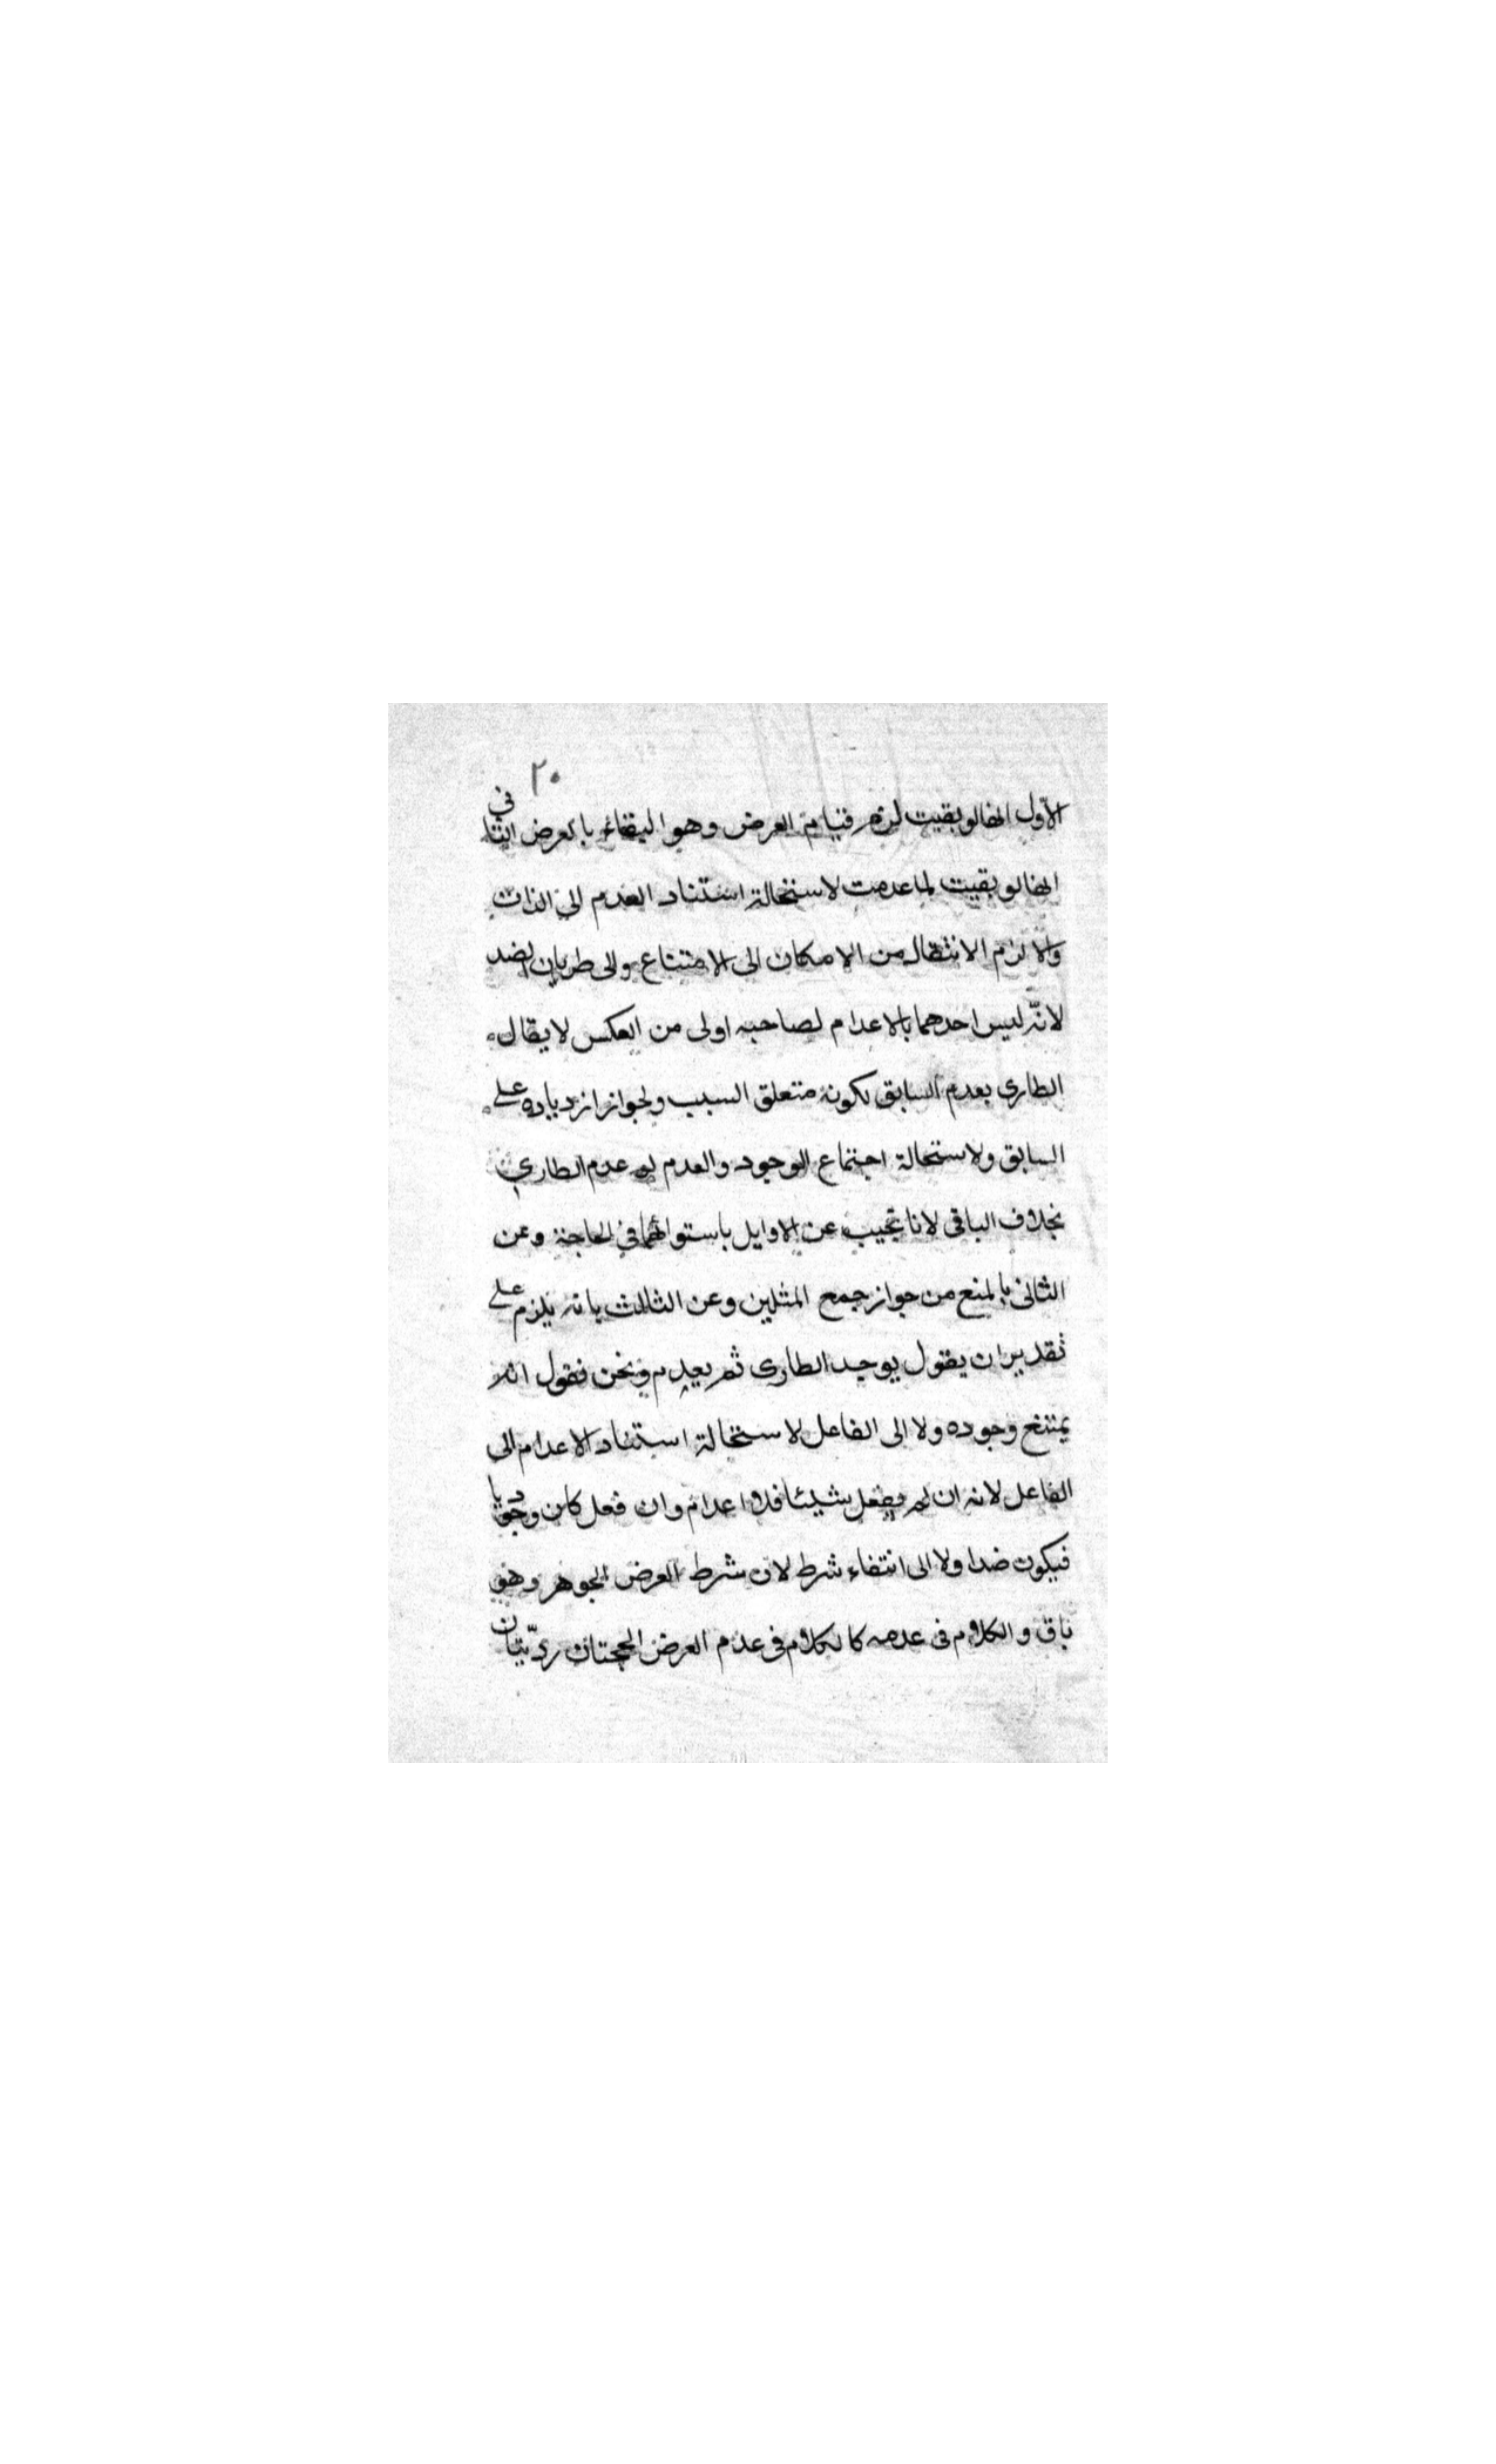 ٢٠
الأوّل انها لو بقيت لزم قيام العرض وهو البقاء بالعرض الثاني
انها لو بقيت لما عدمت لاستحالة استناد العدم الى الذات
والا لزم الانتقال من الامكان الى الامتناع والى طريان الضد
لانّه ليس احدهما بالاعدام لصاحبه اولى من العكس لا يقال
الطارى بعدم السابق لكونه متعلق السبب ولجواز ازدياده على
السابق ولاستحالة اجتماع الوجود والعدم لو عدم الطارى
بخلاف الباقى لانا نجيب عن الاوايل باستوائهما فى الحاجة وعن
الثانى بالمنع من جواز جمع المثلين وعن الثالث بانه يلزم على
تقدير ان يقول يوجد الطارى ثم يعدم ونحن نقول انه
يمتنع وجوده ولا الى الفاعل لاستحالة استناد الاعدام الى
الفاعل لانه ان لم يفعل شيئا فلا اعدام وان فعل كان وجوديا
فيكون ضدا ولا الى انتفاء شرط لان شرط العرض الجوهر وهو
باق والكلام فى عدمه كالكلام فى عدم العرض الحجتان رديّتان